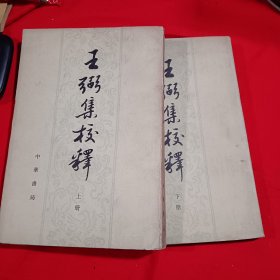 王弼集校釋
上册
中華書局
王弼集校釋
下册